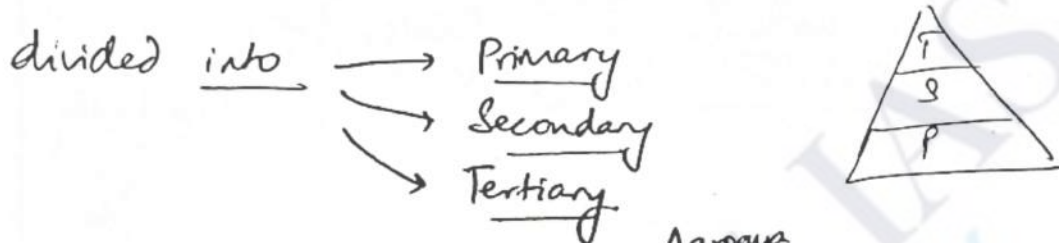 divided into → Primary
→ Secondary
→ Tertiary
T
S
P
IAS